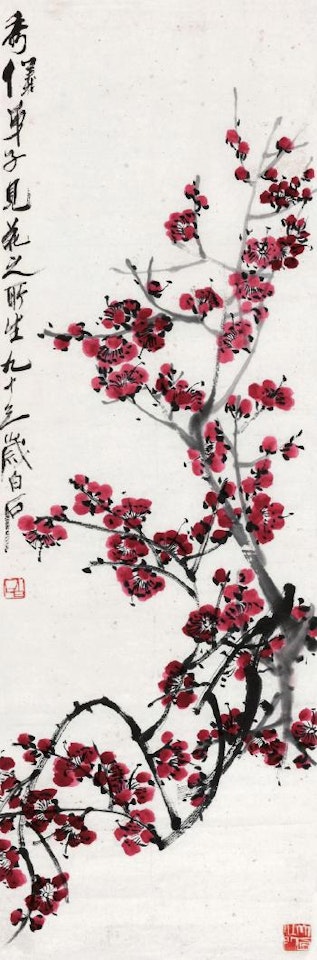 秀儀弟子見花之所生九十三歲白石